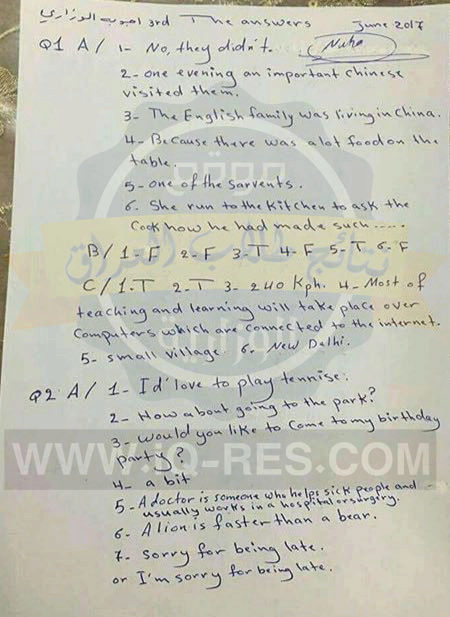 اجوبة الوزاري 3rd The answers June 2017
Q1 A/ 1- No, they didn't. Nuha
2- one evening an important chinese
visited them.
3- The English family was living in China.
4- Because there was a lot food on the
table.
5- one of the sarvents.
6- She run to the kitchen to ask the
Cook how he had made such .....
B/ 1- F 2- F 3- T 4- F 5- T 6- F
C/ 1. T 2- T 3- 240 Kph. 4- Most of
teaching and learning will take place over
Computers which are connected to the internet.
5- small village. 6. New Delhi.
Q2 A/ 1- I'd love to play tennise.
2- How about going to the park?
3- would you like to come to my birthday
party?
4- a bit
5- A doctor is someone who helps sick people and
usually works in a hospital or surgery.
6- A lion is faster than a bear.
7- sorry for being late.
or I'm sorry for being late.
موقع
نتائج طلاب العراق
WWW.IQ-RES.COM